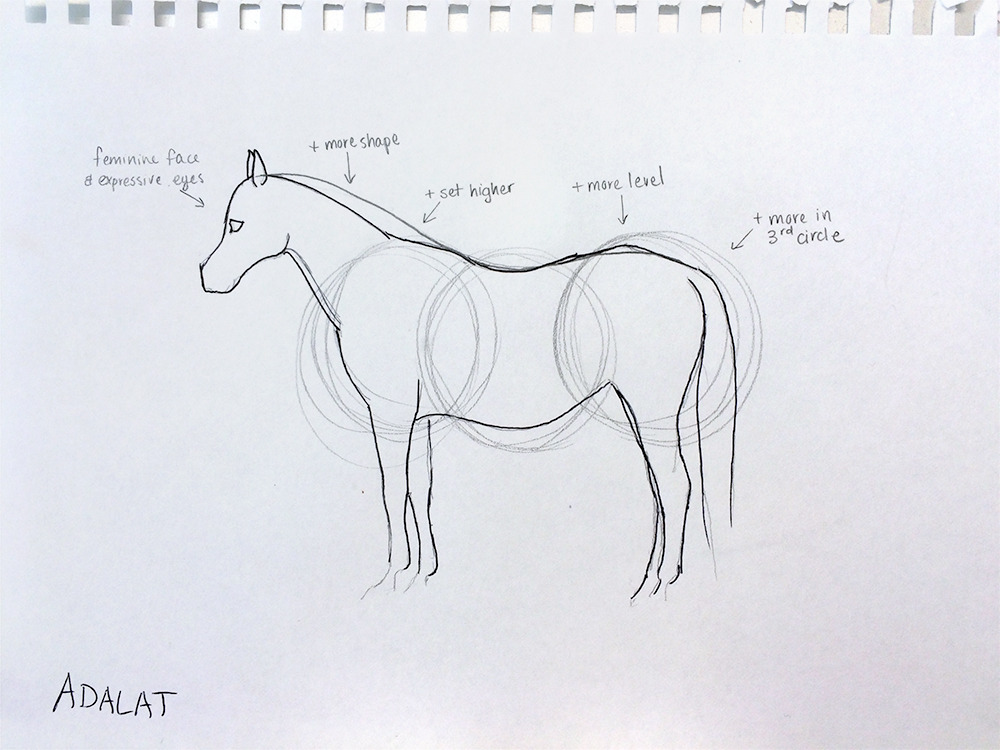 feminine face
& expressive eyes
+ more shape
+ set higher
+ more level
+ more in
3rd circle
ADALAT